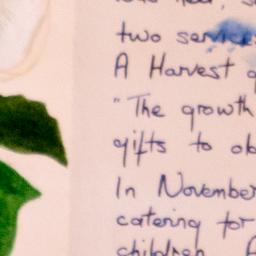 two services
A Harvest
"The growth
gifts to
In November
catering for
children